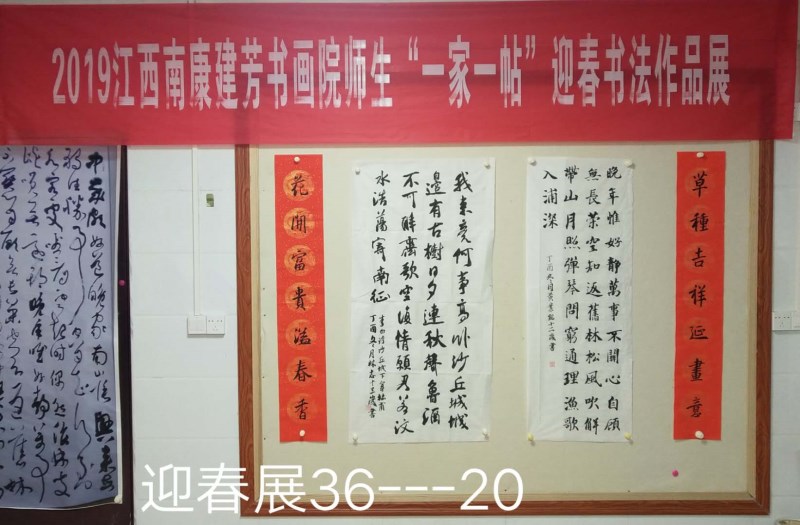 2019江西南康建芳书画院师生“一家一帖”迎春书法作品展
草種吉祥延畫意
晚年惟好靜萬事不關心自顧
無長策空知返舊林松風吹解
帶山月照彈琴問窮通理漁歌
入浦深
我来竟何事高卧沙丘城城
邊有古樹日夕連秋聲魯酒
不可醉齊歌空復情顧君若汶
水浩蕩寄南征
李白詩沙丘城下寄杜甫
花開富貴溢春香
中歲頗好道晚家南山陲興来每
迎春展36---20